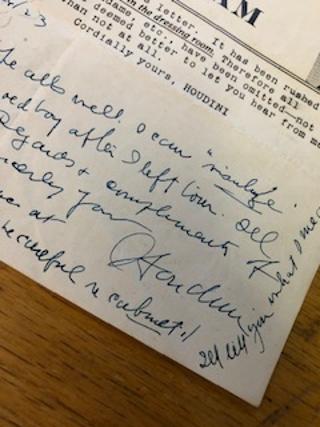 AM
letter. It has been rushed
in the dressing room. Therefore all
adame, etc., have been omitted—not
deemed better to let you hear from me
than not at all.
Cordially yours, HOUDINI
/23
all well. I can "
boy after I left town. All
Regards & compliments of
yours
at Houdini
be careful re cabinet!!
I'll tell you what I mea